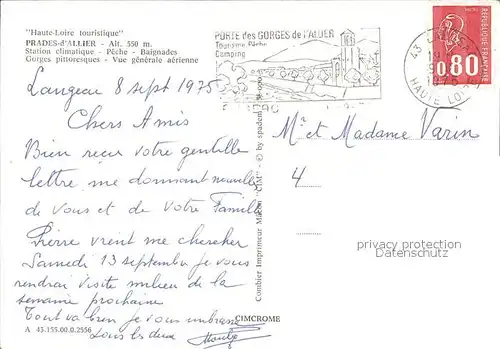 "Haute-Loire touristique"
PRADES-d'ALLIER - Alt. 550 m.
Station climatique - Pêche - Baignades
Gorges pittoresques - Vue générale aérienne
PORTE des GORGES de l'ALLIER
Tourisme, Pêche
Camping
43
HAUTE LOIRE
0,80
Langeac 8 sept 1975
Chers Amis
Bien reçu votre gentille
lettre me donnant nouvelles
de vous et de votre Famille
Pierre vient me chercher
Samedi 13 septembre je vous
rendrai visite milieu de la
semaine prochaine
Tout va bien je vous embrasse
tous les deux
Mr et Madame Varin
4
privacy protection
Datenschutz
Combier Imprimeur Mâcon "CIM" - © by spadem
CIMCROME
A 43.155.00.0.2556